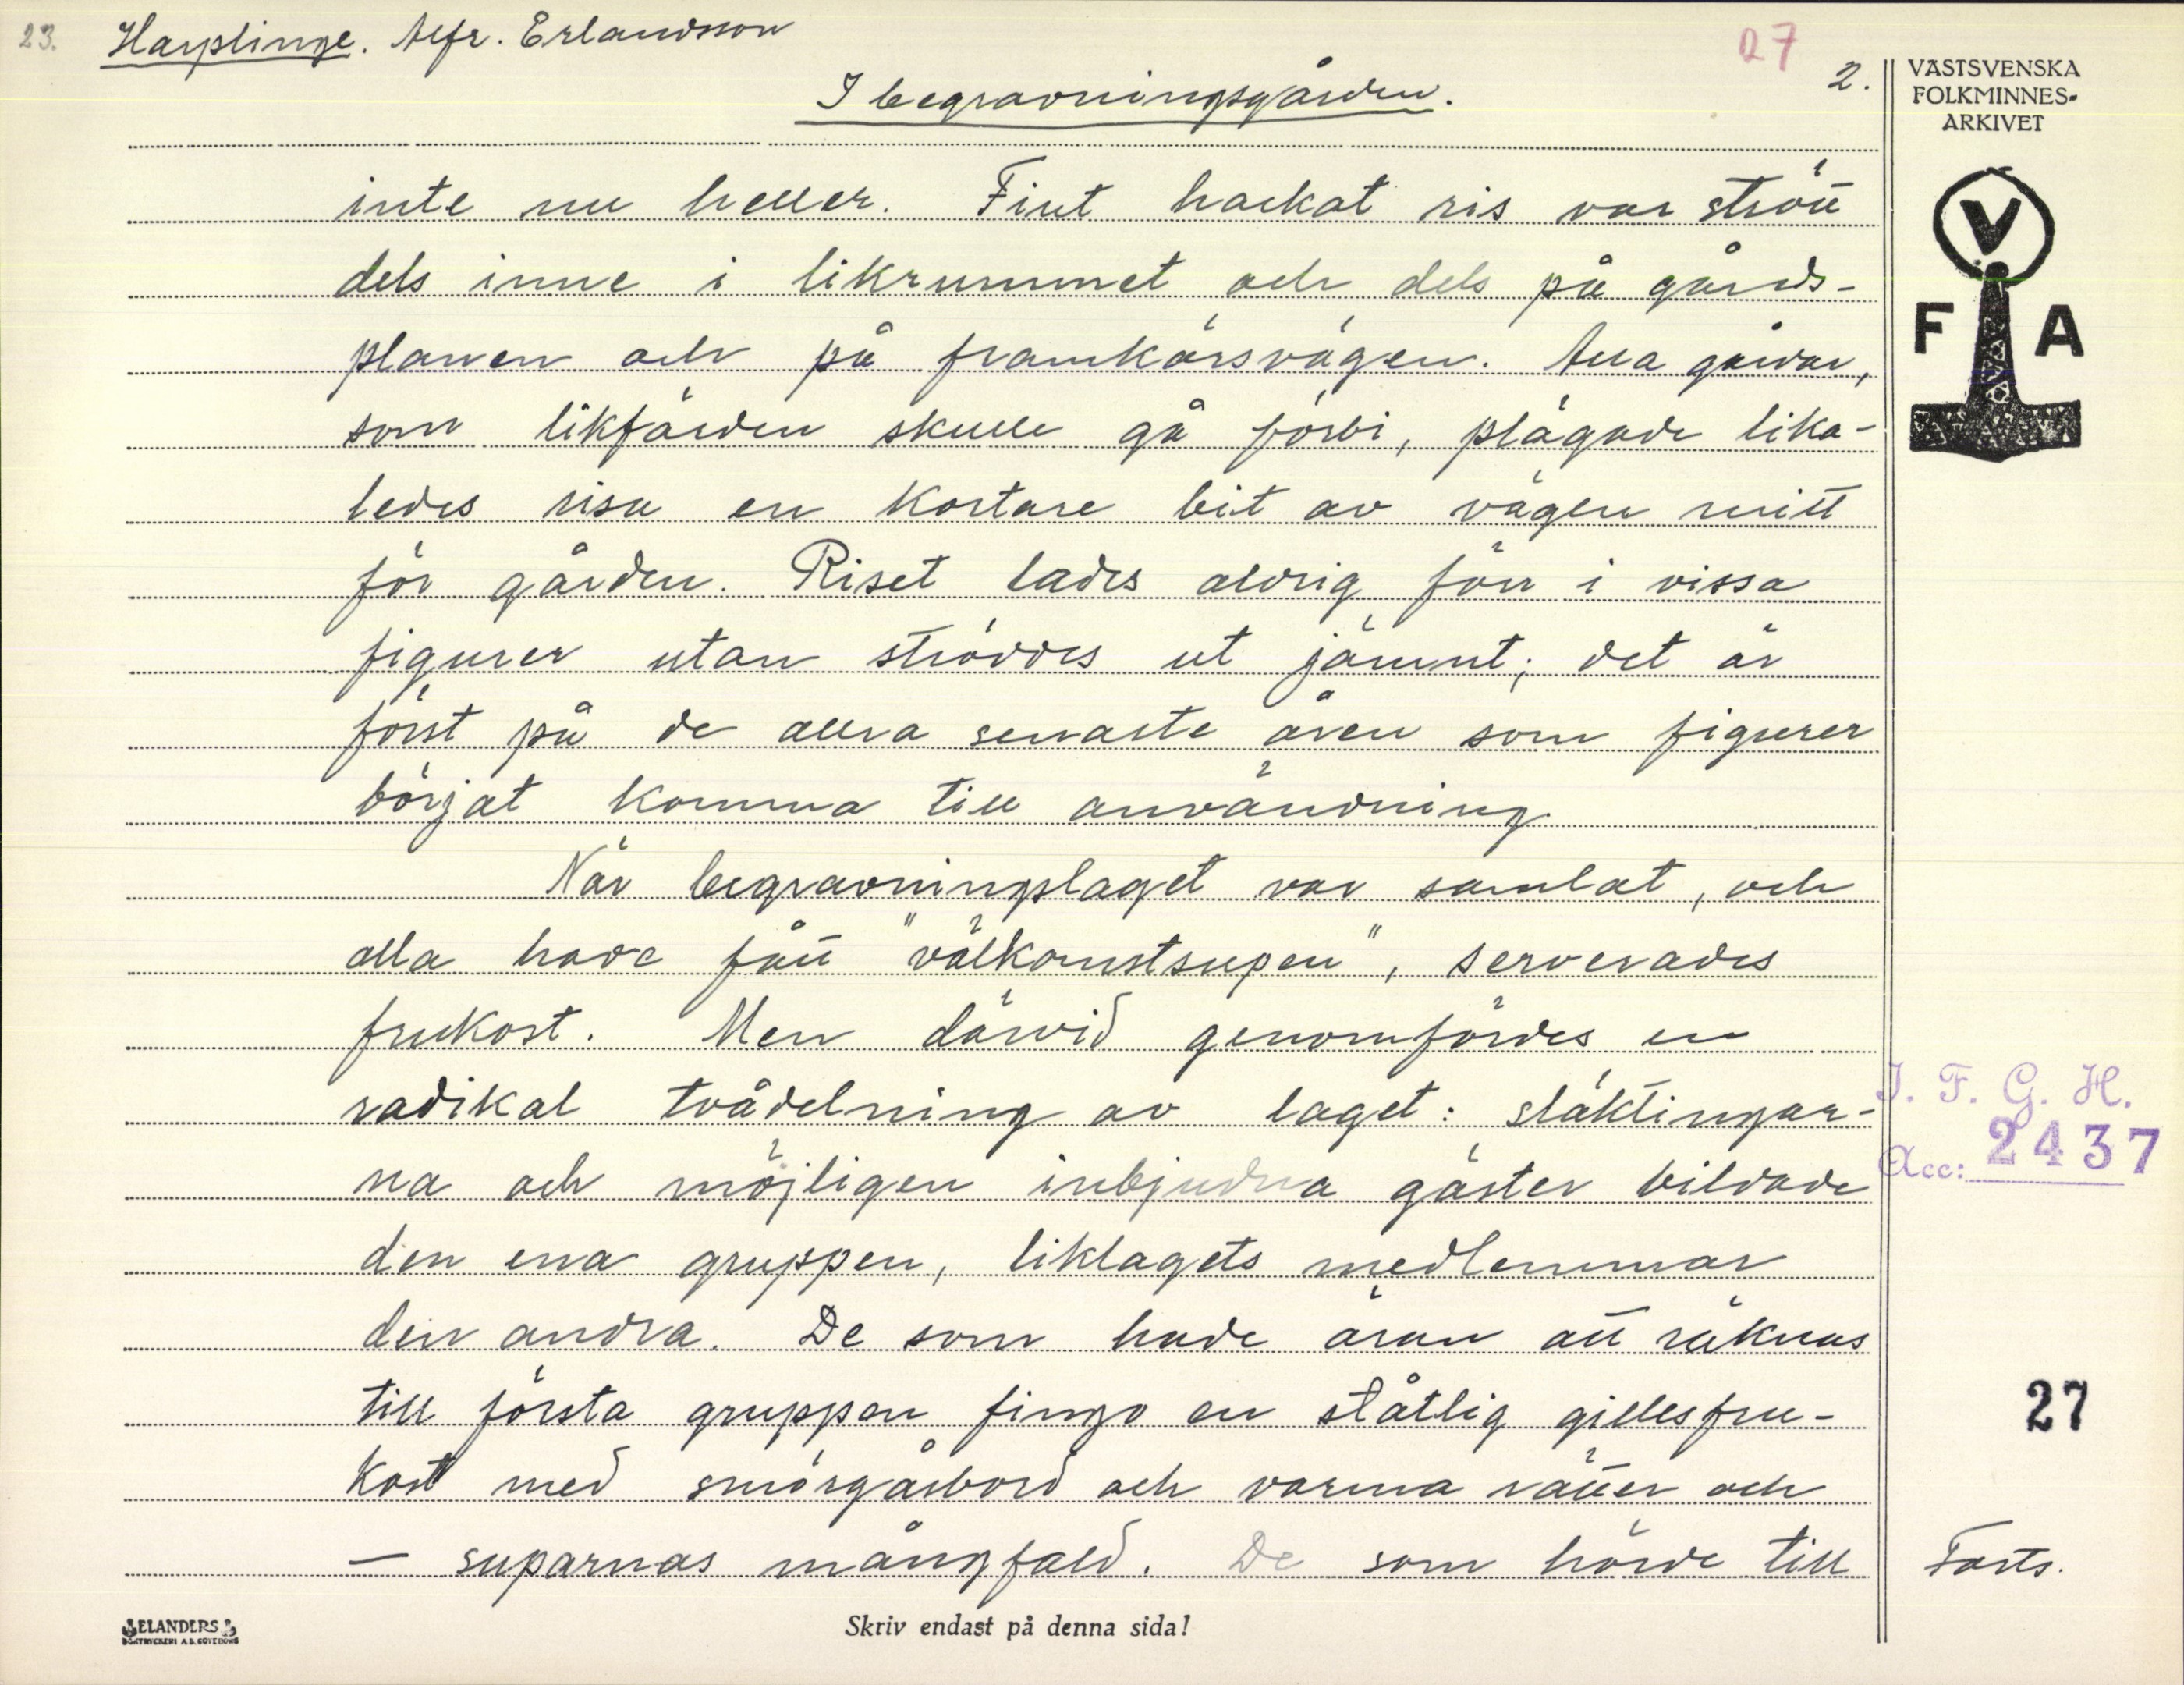 23. Harplinge. Alfr. Erlandsson
27
2.
I begravningsgården.
VÄSTSVENSKA
FOLKMINNES-
ARKIVET
V
F A
inte nu heller. Fint hackat ris var strött
dels inne i likrummet och dels på gårds-
planen och på framkörsvägen. Alla gårdar,
som likfärden skulle gå förbi, plägade lika-
ledes risa en kortare bit av vägen mitt
för gården. Riset lades aldrig förr i vissa
figurer utan ströddes ut jämnt; det är
först på de allra senaste åren som figurer
börjat komma till användning
När begravningslaget var samlat, och
alla hade fått "välkomstsupen", serverades
frukost. Men därvid genomfördes en
radikal tvådelning av laget: släktingar-
na och möjligen inbjudna gäster bildade
den ena gruppen, liklagets medlemmar
den andra. De som hade äran att räknas
till första gruppen fingo en ståtlig gillesfru-
kost med smörgåsbord och varma rätter och
– suparnas mångfald. De som hörde till
Forts.
I. F. G. H.
Acc: 2437
27
ELANDERS
BOKTRYCKERI A.B. GÖTEBORG
Skriv endast på denna sida!